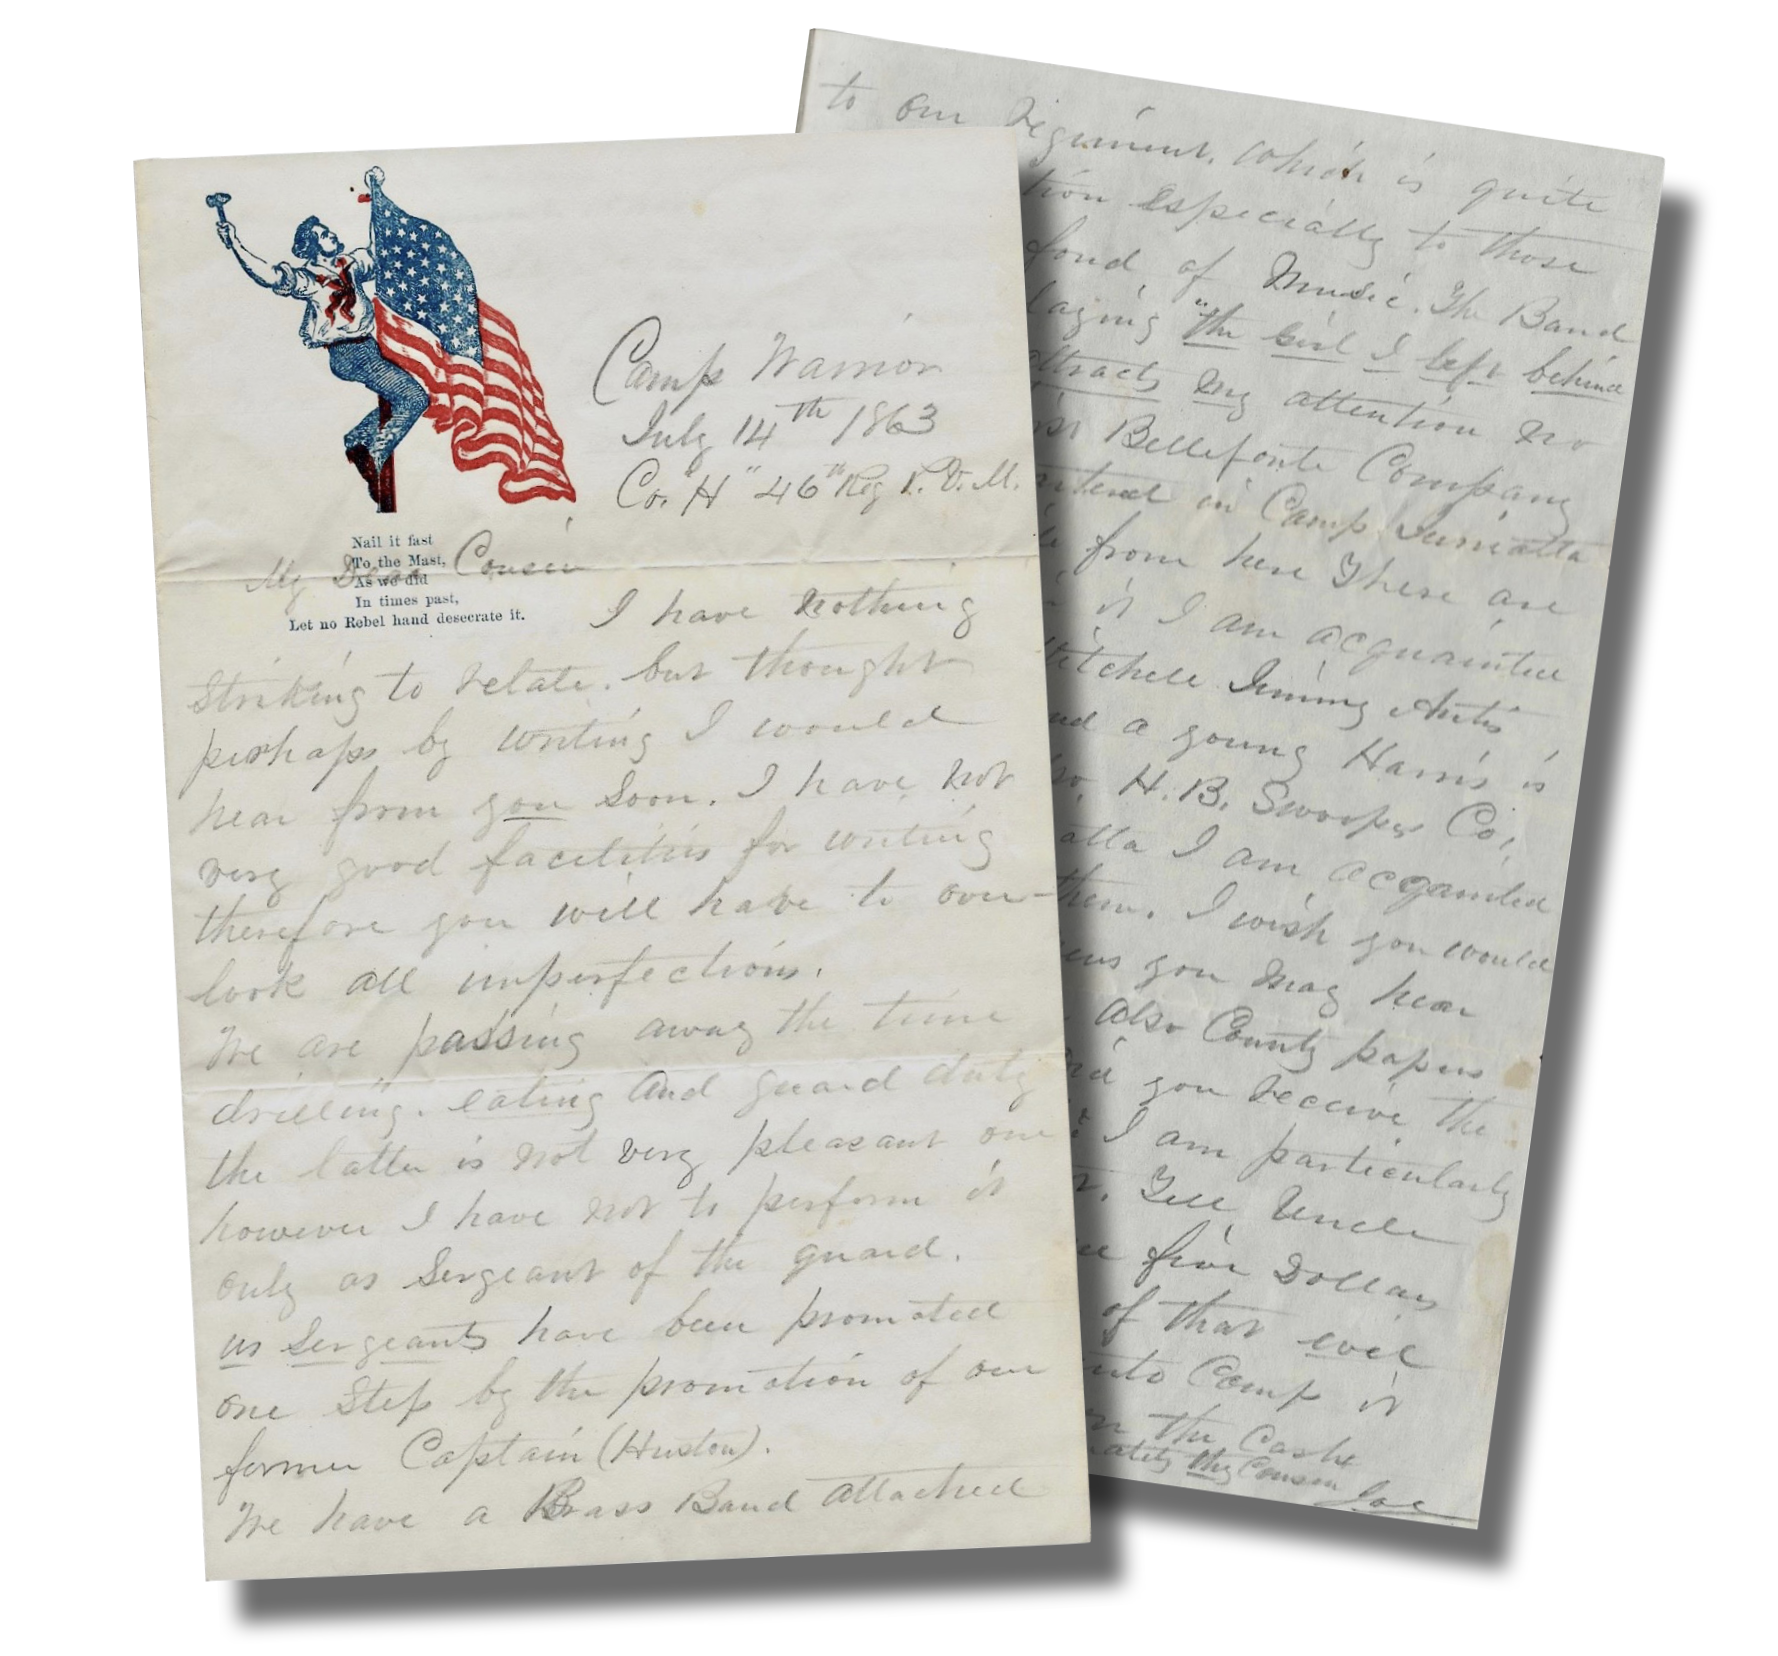 Camp Warrior
July 14th 1863
Co. "H" 46" Reg P. V. M.
Nail it fast
To the Mast,
As we did
In times past,
Let no Rebel hand desecrate it.
My Dear Cousin
I have nothing
striking to relate. but thought
perhaps by writing I would
hear from you soon. I have not
very good facilities for writing
therefore you will have to over-
look all imperfections.
We are passing away the time
drilling. eating and guard duty
the latter is not very pleasant one
however I have not to perform it
only as Sergeant of the guard.
us Sergeants have been promoted
one step by the promotion of our
former Captain (Huston).
We have a Brass Band attached
to our regiment. which is quite
tion especially to those
fond of Music. The Band
laying "the girl I left behind
attracts my attention no
Bellefonte Company
in Camp Juniatta
from here There are
it I am acquainted
itchell Jimmy Antis
nd a young Harris is
H. B. Swoopes Co.
atta I am acquanted
them. I wish you would
ews you may hear
also County papers
you receive the
I am particularly
Tell Uncle
five Dollars
of that evil
into Camp it
the Cashe
my Cousin
Joe